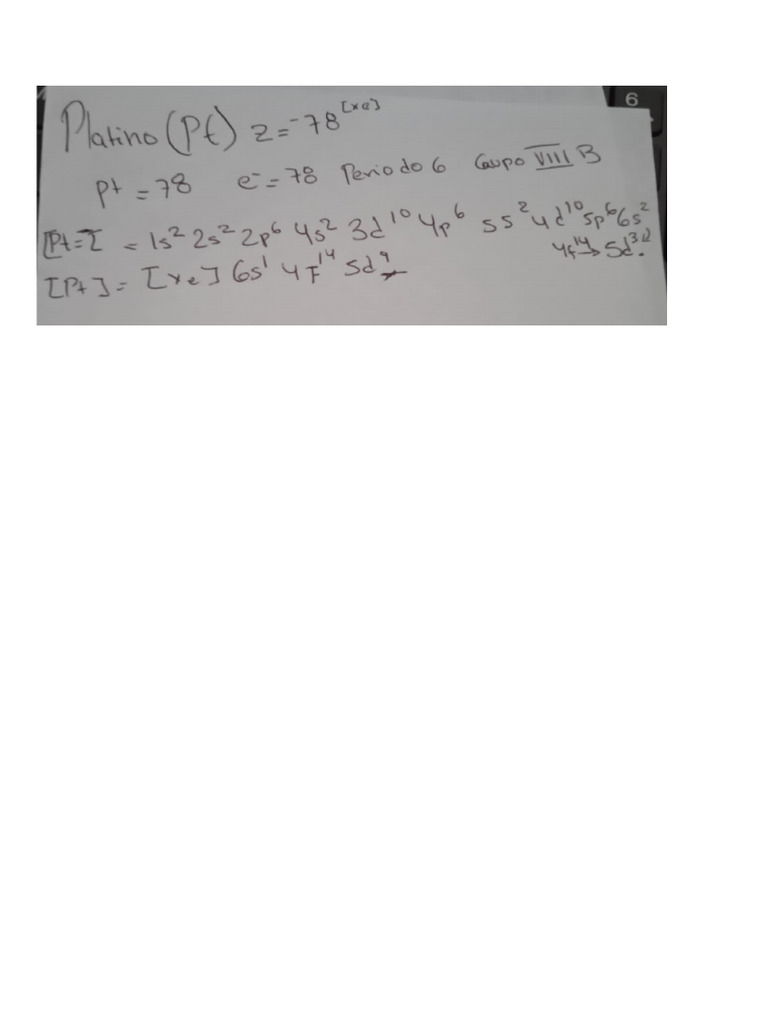 6
Platino (Pt) z=-78 [xe]
p+ = 78 e-= 78 Periodo 6 Grupo VIII B
[Pt=[ = 1s² 2s² 2p⁶ 4s² 3d¹⁰ 4p⁶ 5s² 4d¹⁰ 5p⁶ 6s²
4f¹⁴→ 5d
[Pt] = [xe] 6s¹ 4F¹⁴ 5d⁹